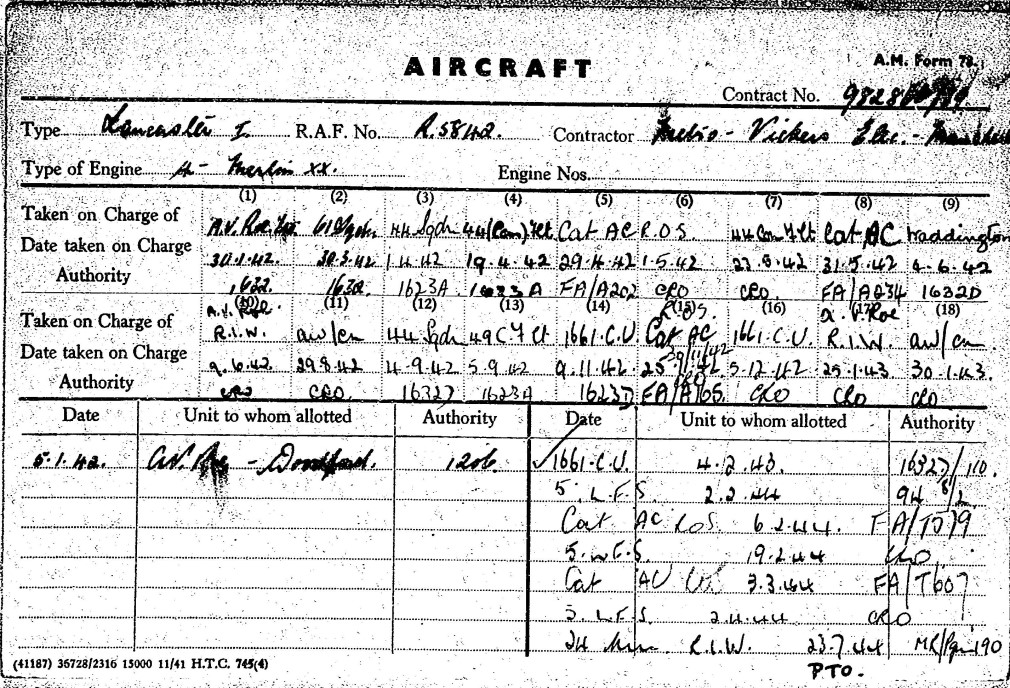 AIRCRAFT
A.M. Form 78.
Contract No. 982866/39
Type Lancaster I. R.A.F. No. R.5842. Contractor Metro-Vickers Elec.-
Type of Engine 4- Merlin XX. Engine Nos.
(1) (2) (3) (4) (5) (6) (7) (8) (9)
Taken on Charge of A.V. Roe 61 Sqdn 44 Sqdn 44(Con) Flt Cat AC R.O.S. 44 Con Flt Cat AC Waddington
Date taken on Charge 30.1.42 30.3.42 1.4.42 19.4.42 29.4.42 1.5.42 23.5.42 31.5.42 4.6.42
Authority 1632. 1632. 1623A 1623A FA/A202 CRO CRO FA/A234 1632D
(10) (11) (12) (13) (14) (15) (16) (17) (18)
Taken on Charge of A.V. Roe R.I.W. aw/cn 44 Sqdn 49 C.Flt 1661.C.U. R.O.S. Cat AC 1661.C.U. A.V. Roe R.I.W. aw/cn
Date taken on Charge 9.6.42 29.8.42 4.9.42 5.9.42 9.11.42 25.11.42 29/11/42 5.12.42 25.1.43 30.1.43.
Authority CRO CRO. 1632D 1623A 1623D FA/A765 CRO CRO CRO CRO
Date Unit to whom allotted Authority Date Unit to whom allotted Authority
5.1.42. A.V. Roe - Woodford. 1206 1661.C.U. 4.2.43. 1632D/110.
5. L.F.S. 2.2.44 94 8/2
Cat AC ROS. 6.2.44. FA/T579
5.L.F.S. 19.2.44 CRO
Cat AC 3.3.44 FA/T607
5. L.F.S 2.4.44 CRO
24 R.I.W. 23.7.44 190
(41187) 36728/2316 15000 11/41 H.T.C. 745(4)
PTO.